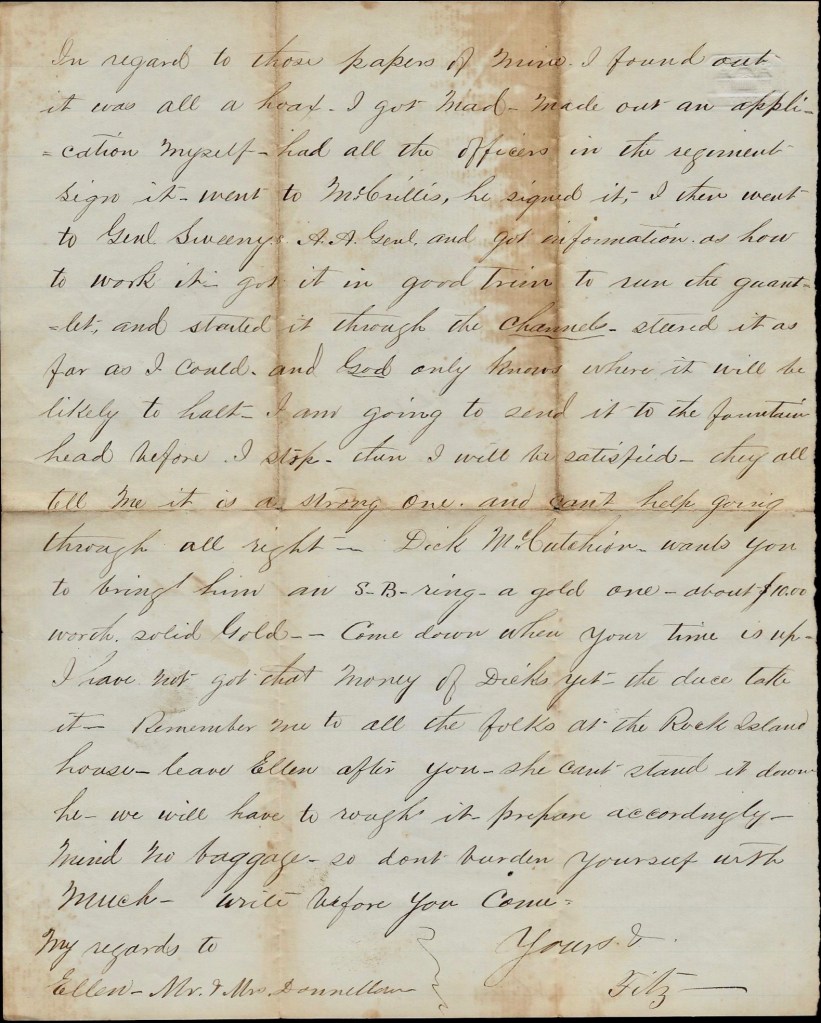 In regard to those papers of mine. I found out
it was all a hoax. I got Mad - Made out an appli-
=cation Myself - had all the officers in the regiment
sign it - went to McCrillis, he signed it, I then went
to Genl Sweenys A.A. Genl, and got information as how
to work it - got it in good trim to run the guant-
=let, and started it through the channels - steered it as
far as I could. and God only knows where it will be
likely to halt - I am going to send it to the fountain
head before I stop - then I will be satisfied - they all
tell me it is a strong one. and cant help going
through all right - Dick McCutchion - wants you
to bring him an S-B-ring - a gold one - about $10.00
worth. solid Gold - - Come down when your time is up -
I have not got that money of Dicks yet - the duce take
it - Remember me to all the folks at the Rock Island
house - leave Ellen after you - she cant stand it down
he - we will have to rough it - prepare accordingly -
Mind no baggage - so dont burden yourself with
Much - write before you Come -
My regards to
Ellen - Mr. & Mrs. Donnellan
Yours &.
Fitz